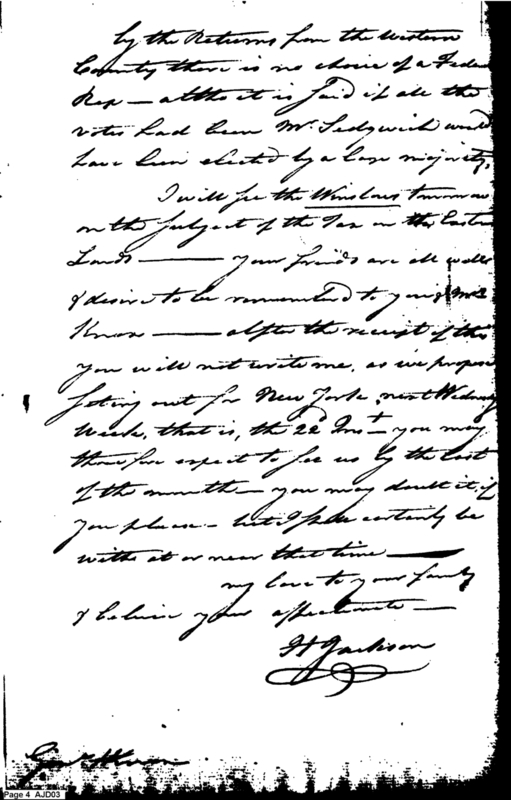 by the Returns from the Western
County there is no choice of a Feder
Rep — altho it is said if all the
votes had been Mr. Sedgwick would
have been elected by a large majority,
I will see the Winslows tomorrow
on the subject of the Tax on the Easter
Lands — your friends are all well
& desire to be rememberd to you & Mrs
Knox — after the receipt of this
you will not write me, as we propose
seting out for New York next Wednesday
Week, that is, the 22d Inst — you may
therefore expect to see us by the last
of the month — you may doubt it, if
you please — but I shall certainly be
with at or near that time —
my love to your family
& believe your affectionate —
H Jackson
Genl Knox
Page 4 AJD03